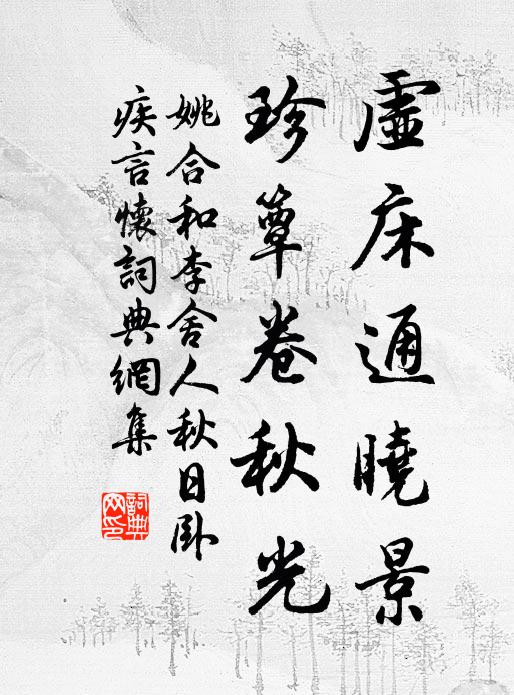 虛床通曉景
珍簟卷秋光
姚合和李舍人秋日臥
疾言懷詞典網集
詞典网印